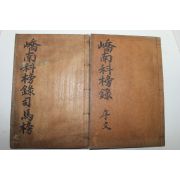 嶠南科榜錄 司馬榜
嶠南科榜錄 序文